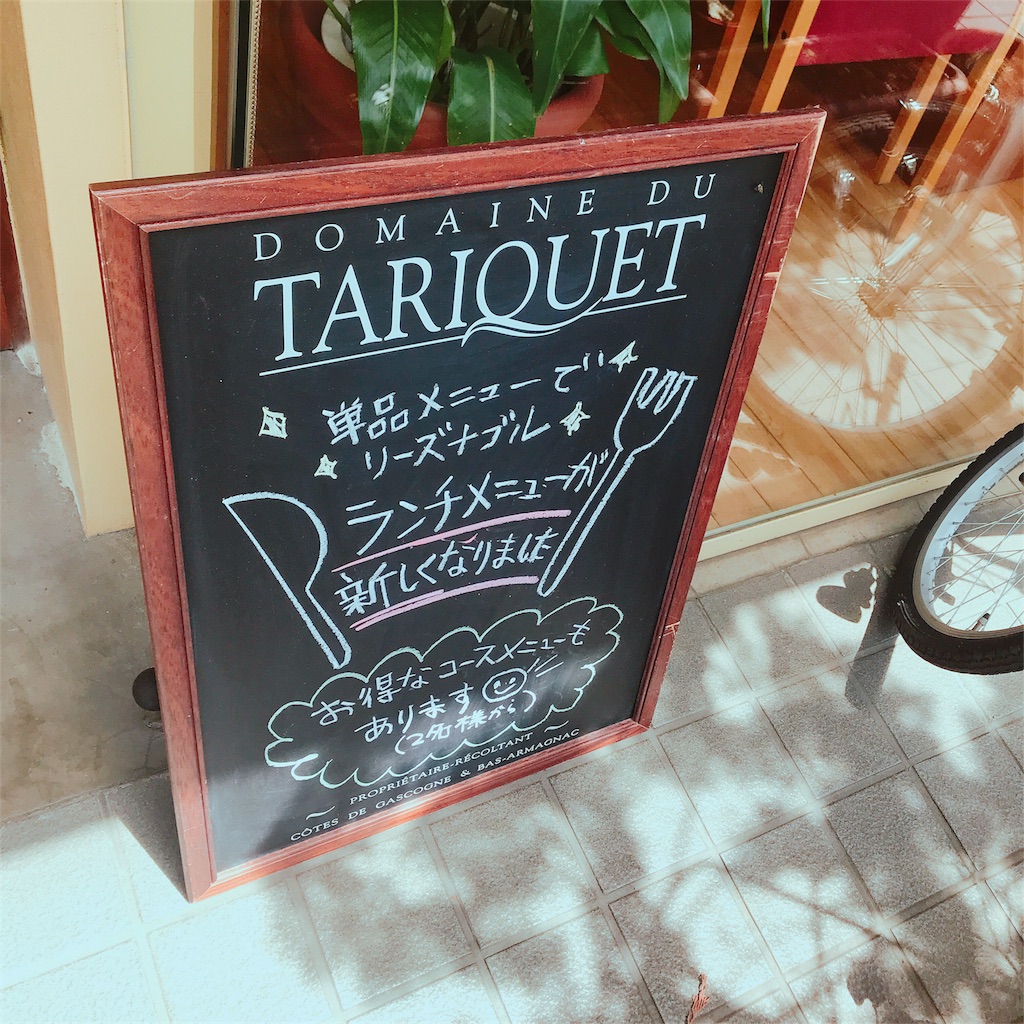 DOMAINE DU
TARIQUET
単品メニューで
リーズナブル
ランチメニューが
新しくなりました
お得なコースメニューも
あります
(2名様から)
PROPRIÉTAIRE-RÉCOLTANT
CÔTES DE GASCOGNE & BAS-ARMAGNAC